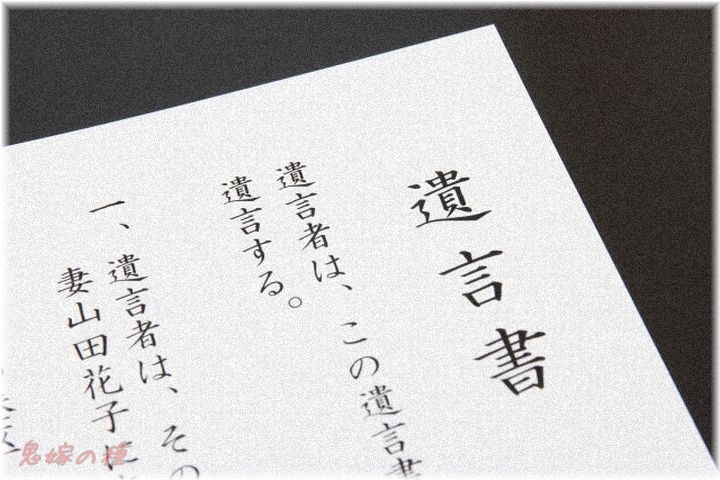 遺言書
遺言者は、この遺言書
遺言する。
一、遺言者は、その
妻山田花子に
鬼嫁の種